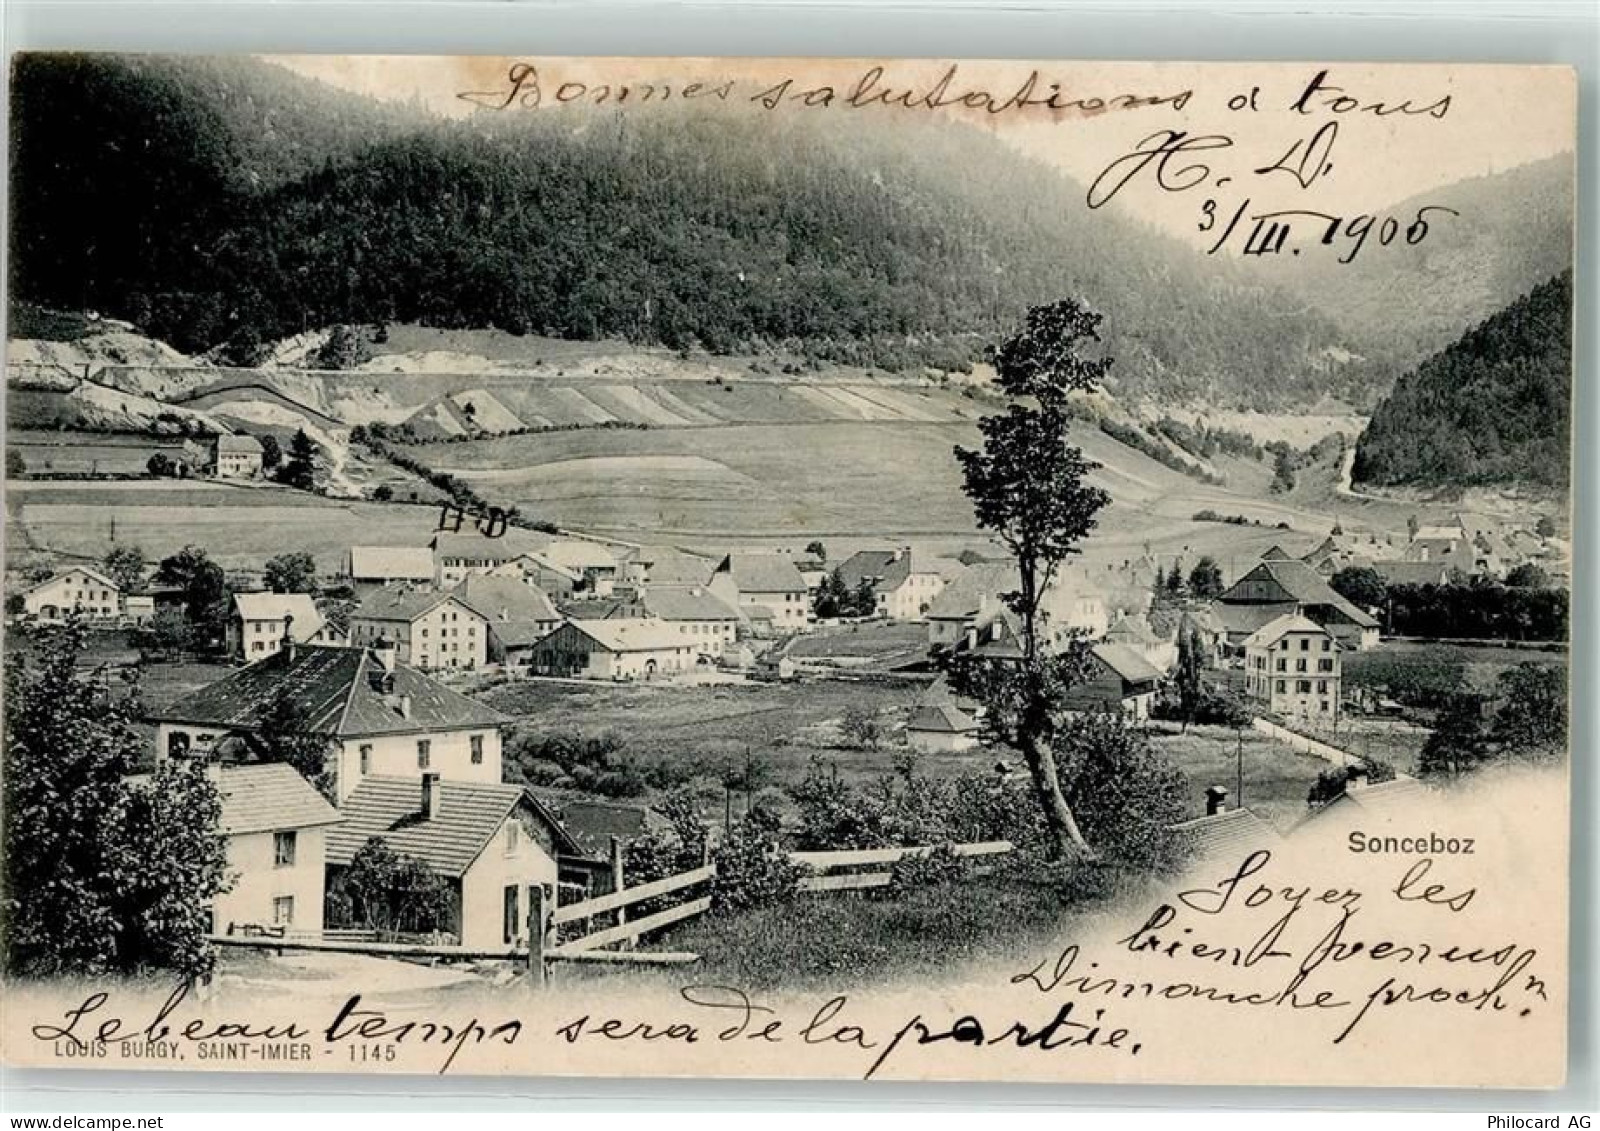 Bonnes salutations a tous
H. D.
3/III. 1906
H-D
Sonceboz
Soyez les
bien-venus
Dimanche proch.n
Le beau temps sera de la partie.
LOUIS BURGY, SAINT-IMIER - 1145
Philocard AG